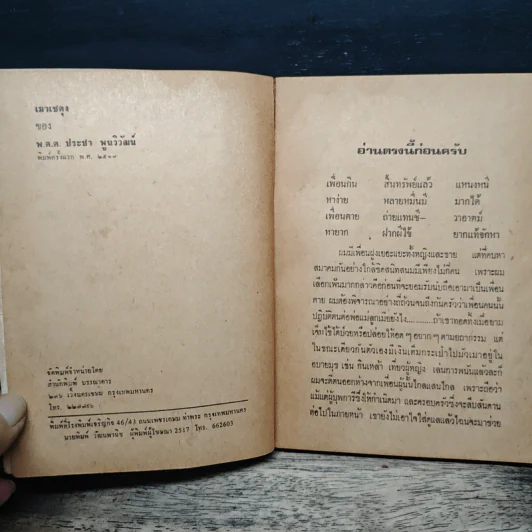 เมาเซตุง
ของ
พ.ต.ต. ประชา พูนวิวัฒน์
พิมพ์ครั้งแรก พ.ศ. ๒๕๑๗
จัดพิมพ์จำหน่ายโดย
สำนักพิมพ์ บรรณาคาร
เวิ้งนครเขษม กรุงเทพมหานคร
โทร.
พิมพ์ที่โรงพิมพ์เจริญกิจ 46/43 ถนนเพชรเกษม ท่าพระ กรุงเทพมหานคร
นายพิมพ์ วัฒนพานิช ผู้พิมพ์ผู้โฆษณา 2517 โทร. 662603
อ่านตรงนี้ก่อนครับ
เพื่อนกิน สิ้นทรัพย์แล้ว แหนงหนี
หาง่าย หลายหมื่นมี มากได้
เพื่อนตาย ถ่ายแทนชี– วาอาตม์
หายาก ฝากผีไข้ ยากแท้จักหา
ผมมีเพื่อนฝูงเยอะแยะทั้งหญิงและชาย แต่ที่คบหา
สมาคมกันอย่างใกล้ชิดสนิทสนมมีเพียงไม่กี่คน เพราะผม
เลือกเฟ้นมากกล่าวคือก่อนที่จะยอมรับนับถือเอามาเป็นเพื่อน
ตาย ผมต้องพิจารณาอย่างถี่ถ้วนจนถึงก้นครัวว่าเพื่อนคนนั้น
ปฏิบัติตนต่อพ่อแม่ลูกเมียยังไง..........ถ้าเขาทอดทิ้งเมื่อยาม
เจ็บไข้ได้ป่วยหรือปล่อยให้อด ๆ อยาก ๆ ตามยถากรรม แต่
ในขณะเดียวกันตัวเองมีเงินเต็มกระเป๋าไปมั่วเมาอยู่ใน
อบายมุข เช่น กินเหล้า เที่ยวผู้หญิง เล่นการพนันแล้วละก้
ผมจะตีตนออกห่างจากเพื่อนผู้นั้นไกลแสนไกล เพราะถือว่า
แม้แต่ผู้บุพการีซึ่งให้กำเนิดมา และครอบครัวซึ่งจะสืบสันดาน
ต่อไปในภายหน้า เขายังไม่เอาใจใส่ดูแลแล้วไฉนจะมาช่วย